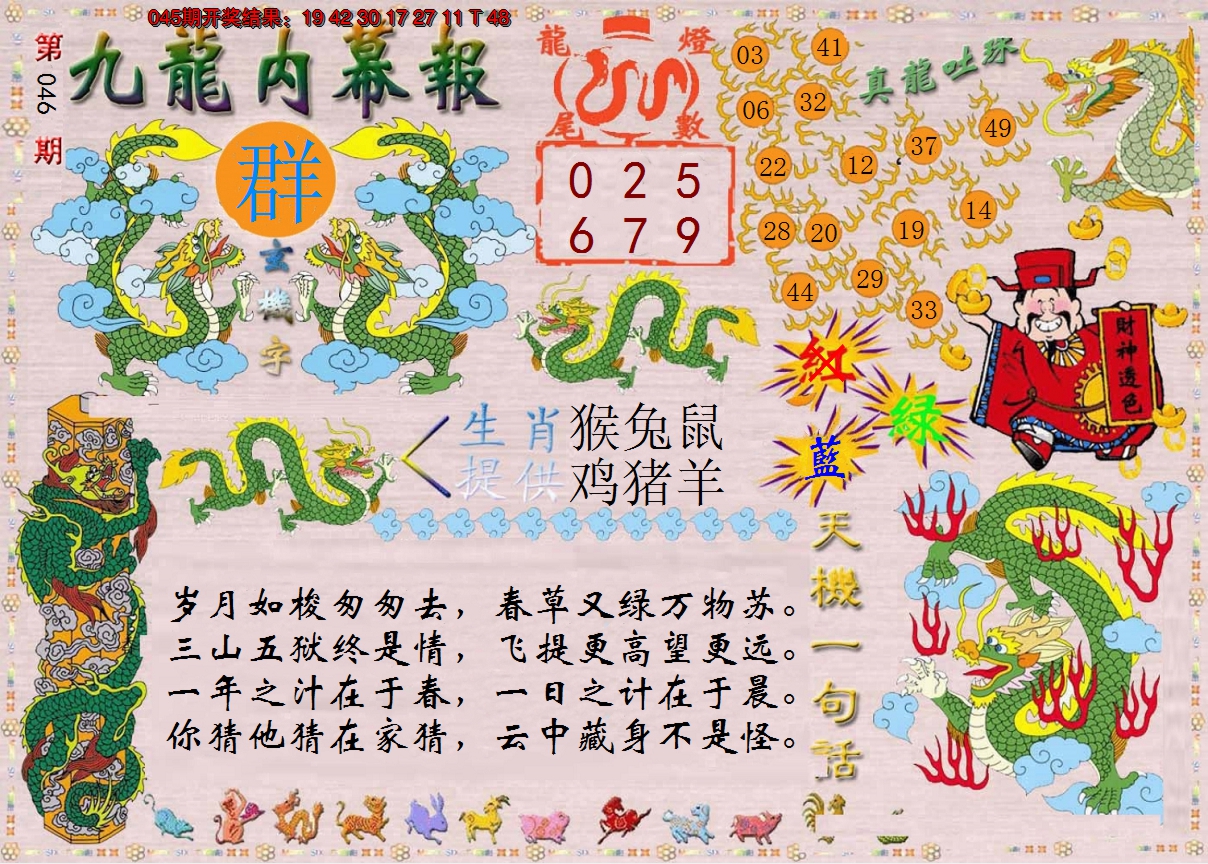 045期开奖结果：19 42 30 17 27 11 T 48
第046期
九龍内幕報
群
玄機字
龍燈
尾數
0 2 5
6 7 9
真龍吐珠
03 41
06 32
37 49
22 12
14
28 20 19
29
44 33
財神透色
紅
綠
藍
生肖 猴兔鼠
提供 鸡猪羊
天機一句話
岁月如梭匆匆去，春草又绿万物苏。
三山五狱终是情，飞提更高望更远。
一年之汁在于春，一日之计在于晨。
你猜他猜在家猜，云中藏身不是怪。